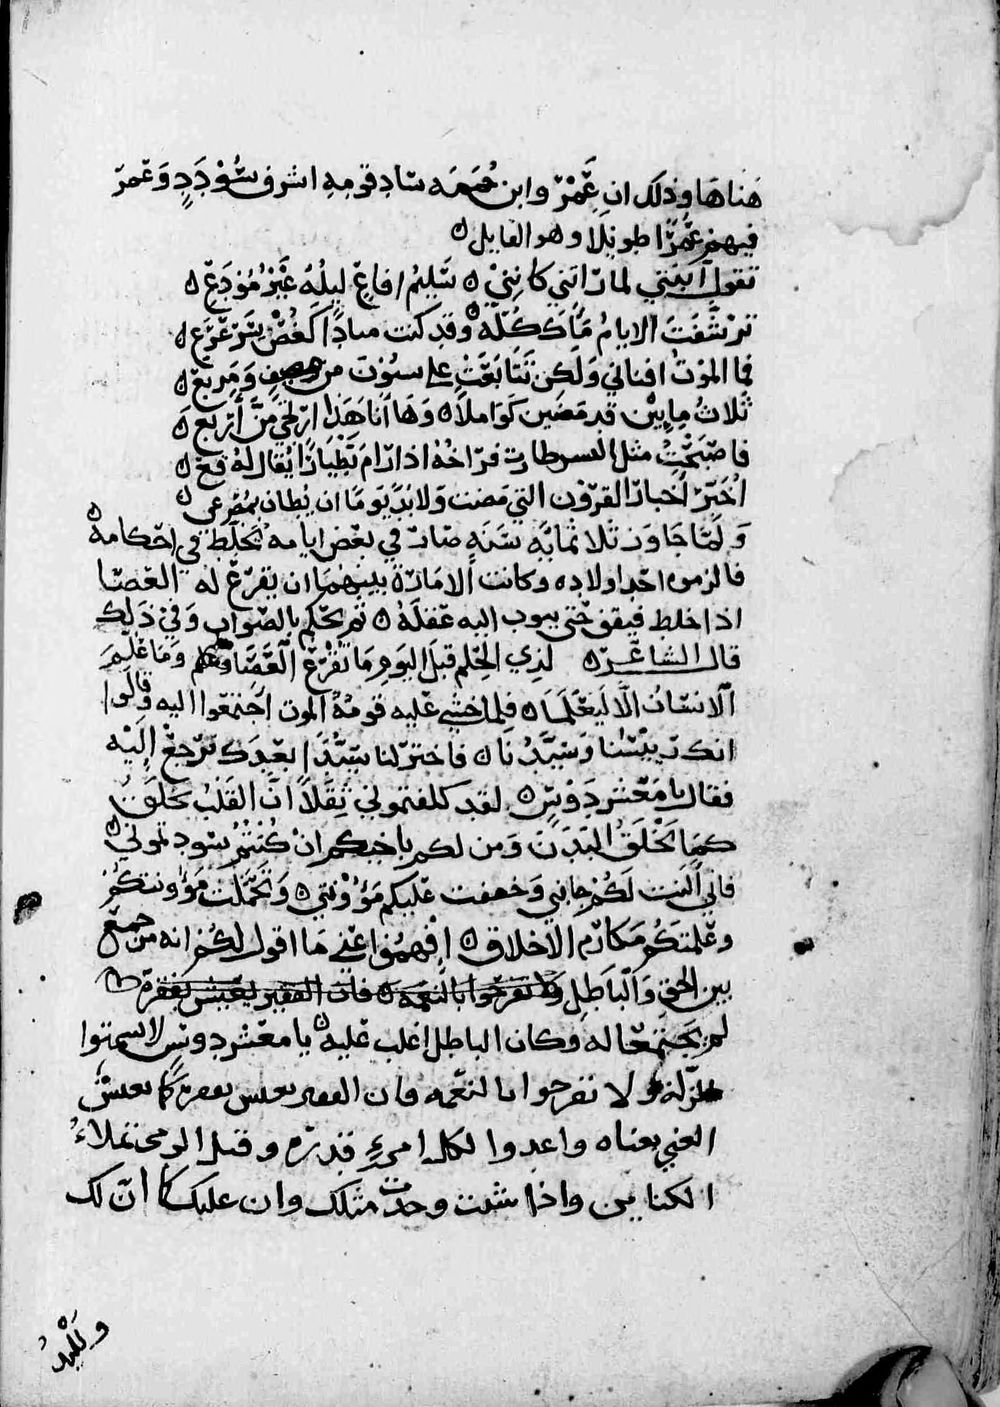 هناها وذلك ان عمرو ابن حممه ساد قومه اشرف سُوْدَدٍ وَعمر
فيهم عُمرًا طويلا وهو القايل ه
تقول ابنتي لما راتني كانني ه سَليمُ افاعٍ ليلُهُ غَيْرُ مُوْدَعِ ه
وقد كنت
فما الموْتُ افناني وَلَكن تَتَابَعَتْ علي سنُوْن من مصيفٍ وَمَربعِ ه
ثَلاثُ مِايِيْن قد مَضَين كوَاملاً ه وَهَا أنا هَذا ارتجي مَرَّ أَرْبَعِ ه
فاصْبَحْتُ مثل النسر طارت فرَاخُهُ اذا رَام تَطْيَارًا يُقال لهُ قعِ ه
اُخَبِّرُ اَخبارَ القرُوْن التي مَضت وَلا بُدَّ يَومًا ان يُطار بمَصْرَعي ه
وَلمَّا جَاوز ثلاثمايَه سَنَه صَار في بَعْض ايامه يُخلّط في احْكامه ه
فالزموه احد اولاده وكانت الامَارَة بينهمَا ان يقرَع له العصَا
اذا خلط فيفق حَتى يبوب اليه عَقلَهُ ه ثم يحْكم بالصَواب وَفي ذلك
قال الشاعر ه لذِي الحِلم قبلَ اليَوم مَا تُقْرَعُ العَصَا وَمَا عُلِّمَ
الانسَانُ الّا ليَعْلَمَا ه فلما خشي عَليه قومُهُ الموت اجتمعوا اليه وقالوا
انك رييسُنا وَسَيّدُنَا ه فاختر لنا سَيّدًا بعْدَك نرجعُ إليْه
فقال يا مَعْشر دَوْسٍ ه لقد كلفتموني ثِقَلاً انّ القَلبَ يَخلَقُ
كمَا يَخْلَقُ البَدَنَ وَمن لكم باخيكم انْ كُنْتُمْ سَودتموني ه
فاني النت لكُم جانبي وَخففت عَليكم مَؤُوْنتي ه وَتحَمَّلت مَؤُونتكُمْ
وعَلمتكُم مَكارم الاخلاق ه إفهمُوا عني مَا اقول لكُمْ انه من جمع
بين الحق وَالبَاطِلِ ولا تفرحوا بالنعمه ه فان الفقير يعيش بفقره
لم يجتمعَا له وكان الباطل اغلب عَليه ه يا معْشر دوسٍ لا تشمتوا
بالزله ولا تفرحوا بالنعْمه فان الفقير يعيش بفقره كَما يعيش
الغني بغناه واعدوا لكل امرءٍ قدرَه وقبل الرمي تملاءُ
الكناين واذا شتت وجدت مثلك وان عليك كما انّ لك